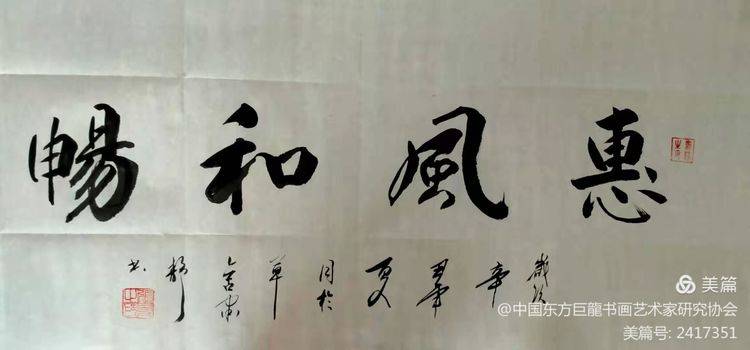 惠風和暢
歲次辛丑年夏月於草
書
美篇
@中国东方巨龍书画艺术家研究协会
美篇号: 2417351